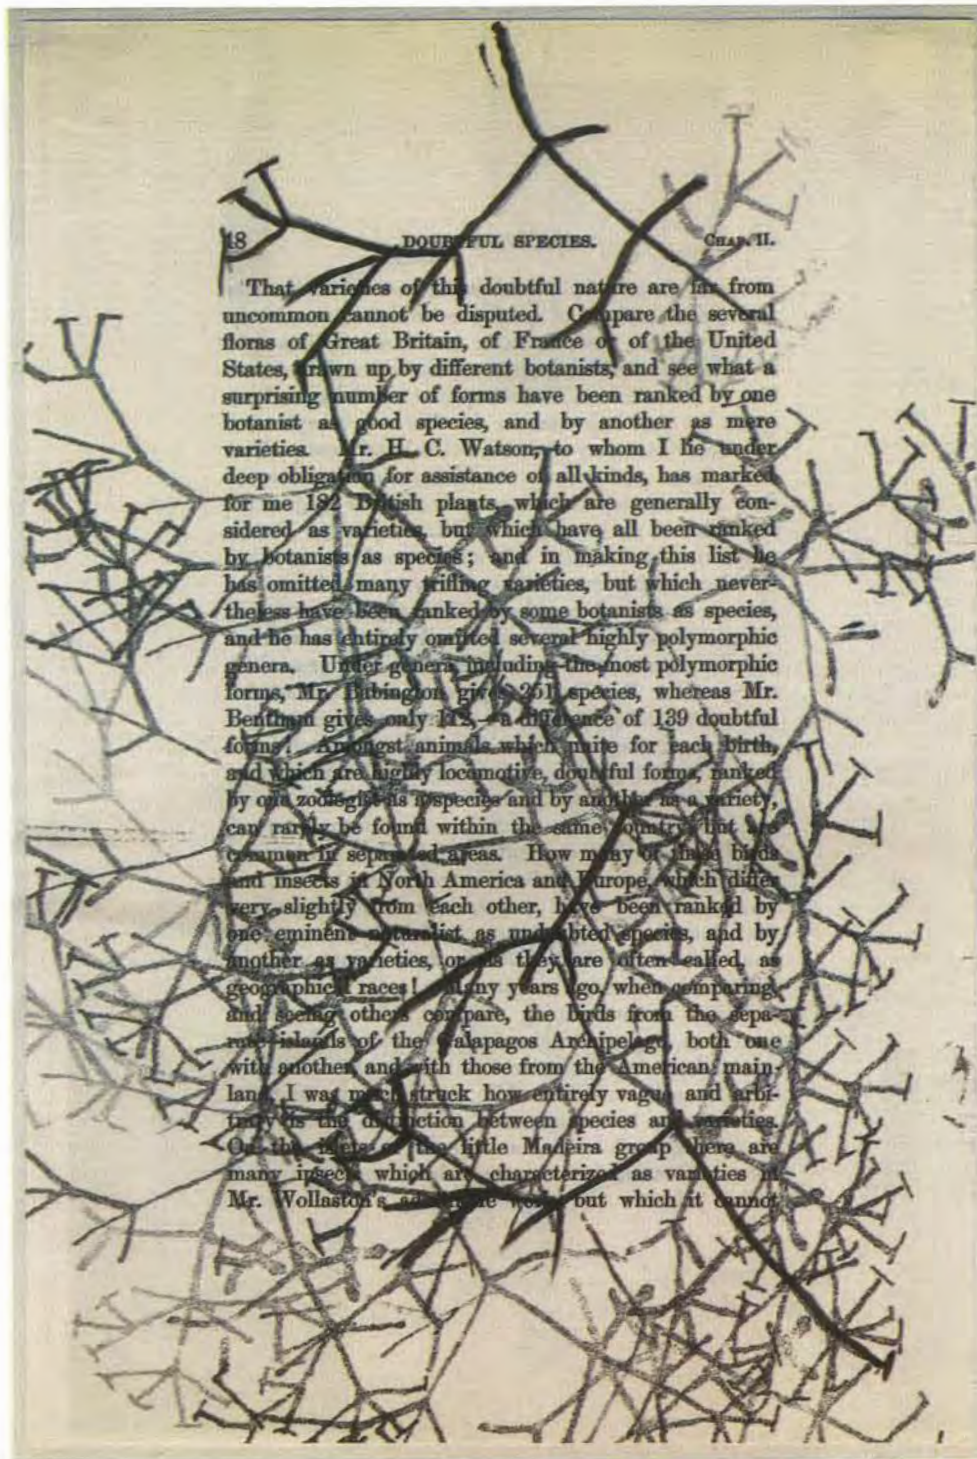 48 DOUBTFUL SPECIES. CHAP. II.
That varieties of this doubtful nature are far from
uncommon cannot be disputed. Compare the several
floras of Great Britain, of France or of the United
States, drawn up by different botanists, and see what a
surprising number of forms have been ranked by one
botanist as good species, and by another as mere
varieties. Mr. H. C. Watson, to whom I lie under
deep obligation for assistance of all kinds, has marked
for me 182 British plants, which are generally con-
sidered as varieties, but which have all been ranked
by botanists as species; and in making this list he
has omitted many trifling varieties, but which never-
theless have been ranked by some botanists as species,
and he has entirely omitted several highly polymorphic
genera. Under genera, including the most polymorphic
forms, Mr. Babington gives 251 species, whereas Mr.
Bentham gives only 112,—a difference of 139 doubtful
forms! Amongst animals which unite for each birth,
and which are highly locomotive, doubtful forms, ranked
by one zoologist as a species and by another as a variety,
can rarely be found within the same country, but are
common in separated areas. How many of those birds
and insects in North America and Europe, which differ
very slightly from each other, have been ranked by
one eminent naturalist as undoubted species, and by
another as varieties, or as they are often called, as
geographical races! Many years ago, when comparing,
and seeing others compare, the birds from the sepa-
rate islands of the Galapagos Archipelago, both one
with another, and with those from the American main-
land, I was much struck how entirely vague and arbi-
trary is the distinction between species and varieties.
On the islets of the little Madeira group there are
many insects which are characterized as varieties in
Mr. Wollaston's admirable work, but which it cannot